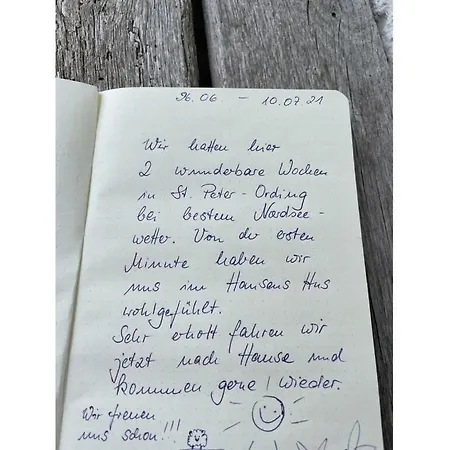 26.06. – 10.07.21
Wir hatten hier
2 wunderbare Wochen
in St. Peter-Ording
bei bestem Nordsee-
wetter. Von der ersten
Minute haben wir
uns im Hansens Hus
wohlgefühlt.
Sehr erholt fahren wir
jetzt nach Hause und
kommen gerne wieder.
Wir freuen
uns schon!!!